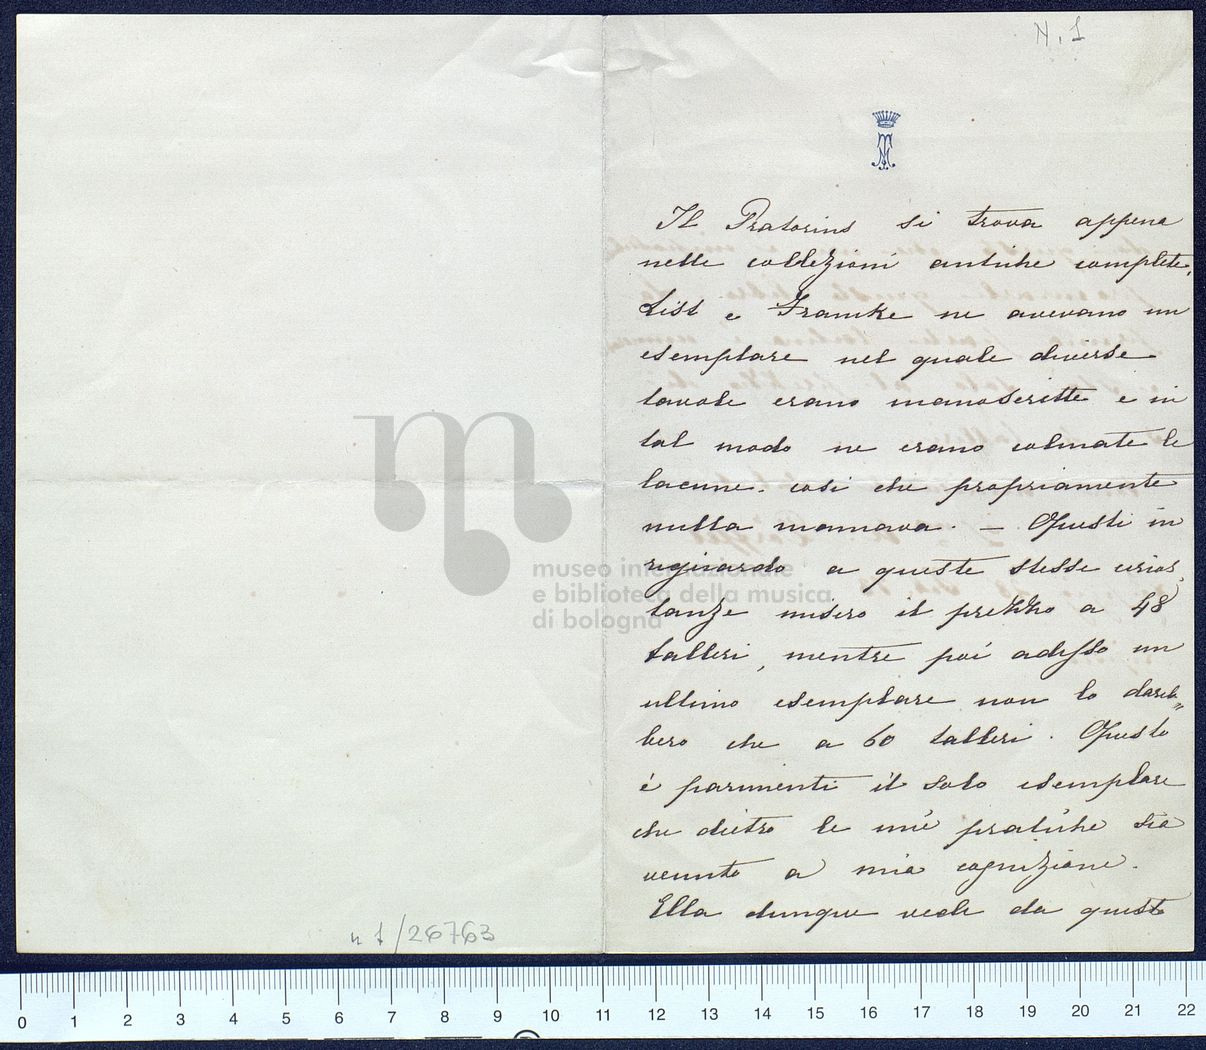 N. 1
Il Pratorius si trova appena
nelle collezioni antiche complete.
List e Francke ne avevano un
esemplare nel quale diverse
tavole erano manoscritte e in
tal modo ne erano colmate le
lacune. così che propriamente
nulla mancava. — Questi in
riguardo a queste stesse circos
tanze misero il prezzo a 48
talleri, mentre poi adesso un
ultimo esemplare non lo dareb„
bero che a 60 talleri. Questo
é parimenti il solo esemplare
che dietro le mie pratiche sia
venuto a mia cognizione.
Ella dunque vede da questo
n 1/26763
museo internazionale
e biblioteca della musica
di bologna
0 1 2 3 4 5 6 7 8 9 10 11 12 13 14 15 16 17 18 19 20 21 22